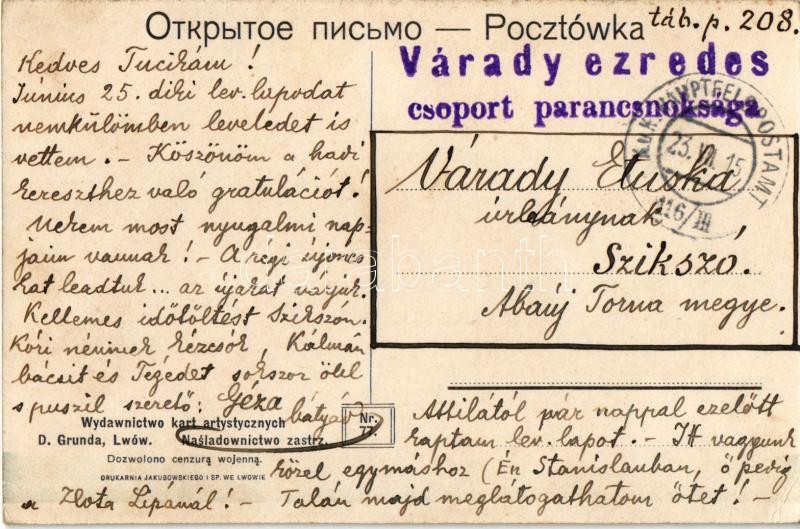 Открытое письмо — Pocztówka
táb. p. 208.
Várady ezredes
csoport parancsnoksága
K.u.K. HAUPTFELDPOSTAMT
23. VII. 15
116/III
Kedves Tucikám!
Junius 25. diki lev. lapodat
nemkülömben leveledet is
vettem. - Köszönöm a hadi
kereszthez való gratulációt!
Nekem most nyugalmi nap-
jaim vannak! - A régi újonco
kat leadtuk... az újakat várjuk.
Kellemes időtöltést Szikszón.
Kóri néninek kézcsók, Kálmán
bácsit és Tégedet sokszor ölel
s puszil szerető: Géza
bátyád
Várady Etuska
úrleánynak
Szikszó.
Abaúj Torna megye.
Wydawnictwo kart artystycznych
D. Grunda, Lwów. Naśladownictwo zastrz.
Nr.
77.
Dozwolono cenzurą wojenną.
DRUKARNIA JAKUBOWSKIEGO I SP. WE LWOWIE
Attilától pár nappal ezelőtt
kaptam lev. lapot. - Itt vagyunk
közel egymáshoz (Én Stanislauban, ő pedig
a Zlota Lipánál! - Talán majd meglátogathatom őtet! -
darabanth